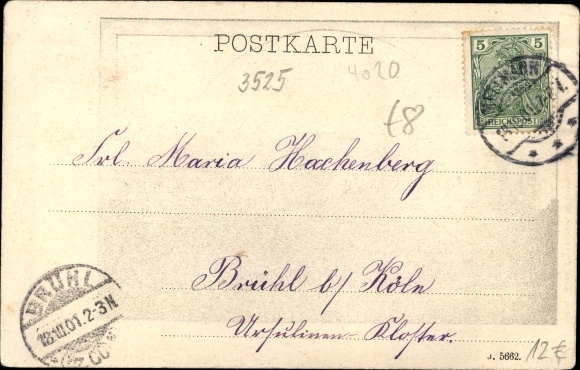 POSTKARTE
5 5
REICHSPOST
3525
4020
£8
Frl. Maria Hachenberg
Brühl b/ Köln
Ursulinen-Kloster.
BRÜHL
18.10.01.2-3N
J. 5662.
12€